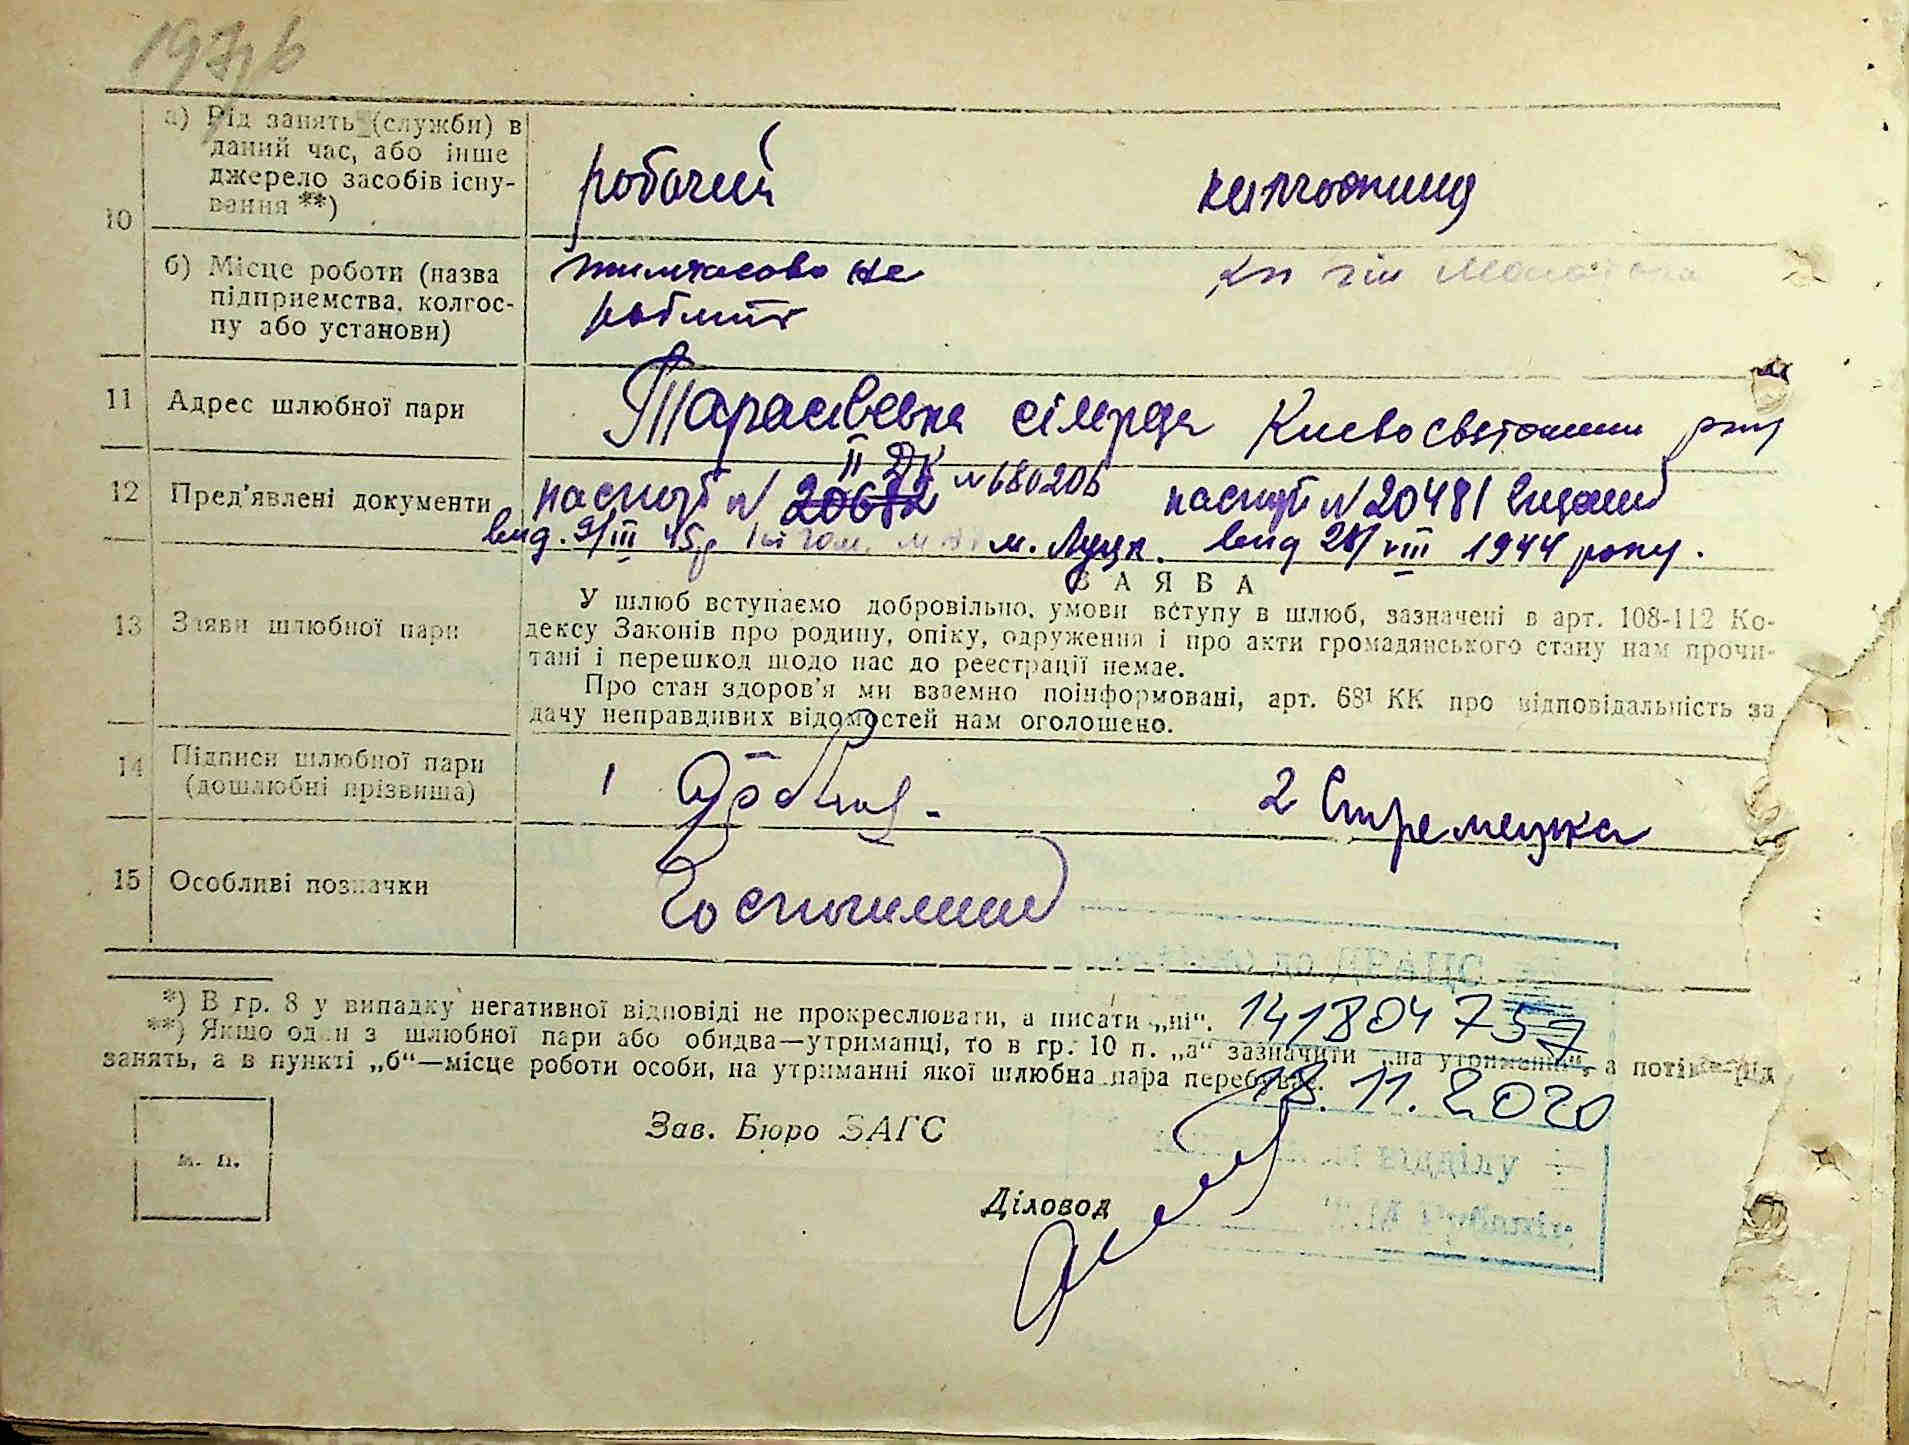 10
а) Рід занять (служби) в
даний час, або інше
джерело засобів існу-
вання **)
робочий
колгоспниця
б) Місце роботи (назва
підприємства, колгос-
пу або установи)
тимчасово не
робить
11 Адрес шлюбної пари
Тарасівська сільрада Києвосвятошин р-ну
12 Пред'явлені документи
паспорт № 20682 II ДК № 680206
паспорт № 20481
вид. 9/III 45р. м. Луцьк. вид 28/VIII 1944 року.
13 Заяви шлюбної пари
ЗАЯВА
У шлюб вступаємо добровільно, умови вступу в шлюб, зазначені в арт. 108-112 Ко-
дексу Законів про родину, опіку, одруження і про акти громадянського стану нам прочи-
тані і перешкод щодо нас до реєстрації немає.
Про стан здоров'я ми взаємно поінформовані, арт. 68¹ КК про відповідальність за
дачу неправдивих відомостей нам оголошено.
14 Підписи шлюбної пари
(дошлюбні прізвища)
1
2 Стремецька
15 Особливі позначки
*) В гр. 8 у випадку негативної відповіді не прокреслювати, а писати „ні“.
**) Якщо один з шлюбної пари або обидва—утриманці, то в гр. 10 п. „а“ зазначити „на утриманні“, а потім рід
занять, а в пункті „б“—місце роботи особи, на утриманні якої шлюбна пара перебуває.
14180475
18.11.2020
Зав. Бюро ЗАГС
м. п.
відділу
Діловод